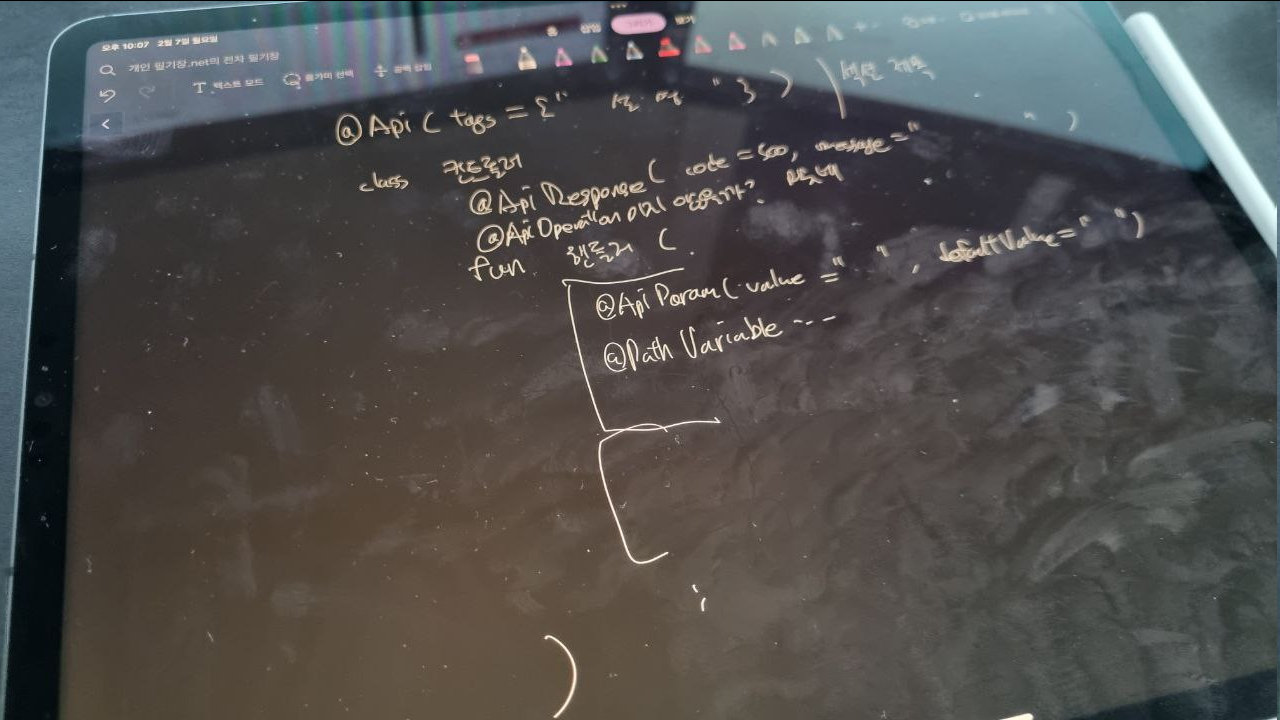 오후 10:07 2월 7일 월요일
개인 필기장.net의 전자 필기장
삽입
텍스트 모드 올가미 선택 공백 삽입
@Api ( tags = {" 설명 "} )
class 컨트롤러
@Api Response ( code = 500, message = " " )
@Api Operation
fun 핸들러 (
@Api Param ( value = " ", defaultValue = " " )
@Path Variable ---
)